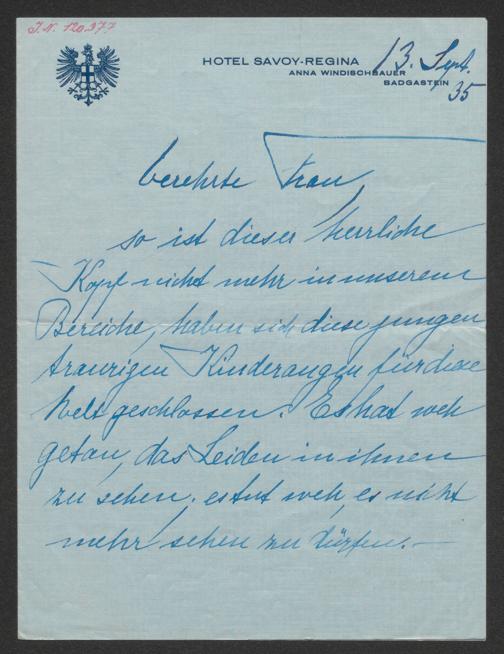 J.N. 120.977
HOTEL SAVOY-REGINA
ANNA WINDISCHBAUER
BADGASTEIN
13. Sept.
35
Verehrte Frau,
so ist dieser herrliche
Kopf nicht mehr in unserem
Bereiche, haben sich diese jungen
traurigen Kinderaugen für diese
Welt geschlossen. Es hat weh
getan, das Leiden in ihnen
zu sehen, es tut weh, es nicht
mehr sehen zu dürfen. —